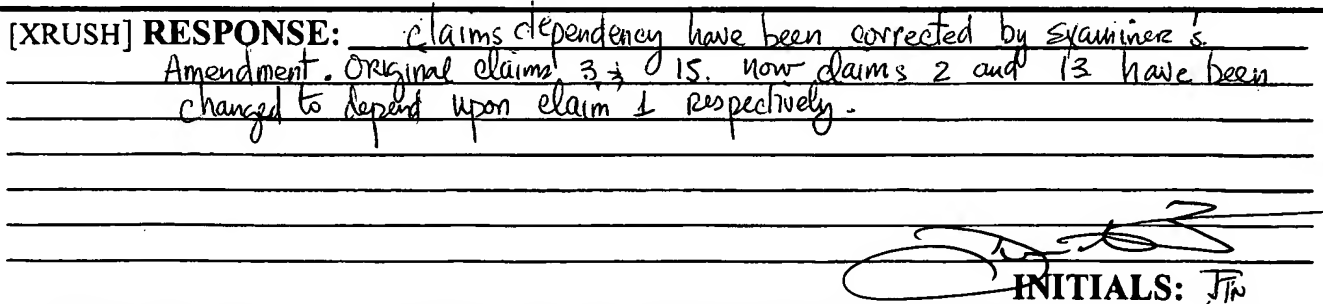 [XRUSH] RESPONSE: claims dependency have been corrected by Examiner's
Amendment. Original claims 3 & 15. now claims 2 and 13 have been
changed to depend upon claim 1 respectively.
INITIALS: